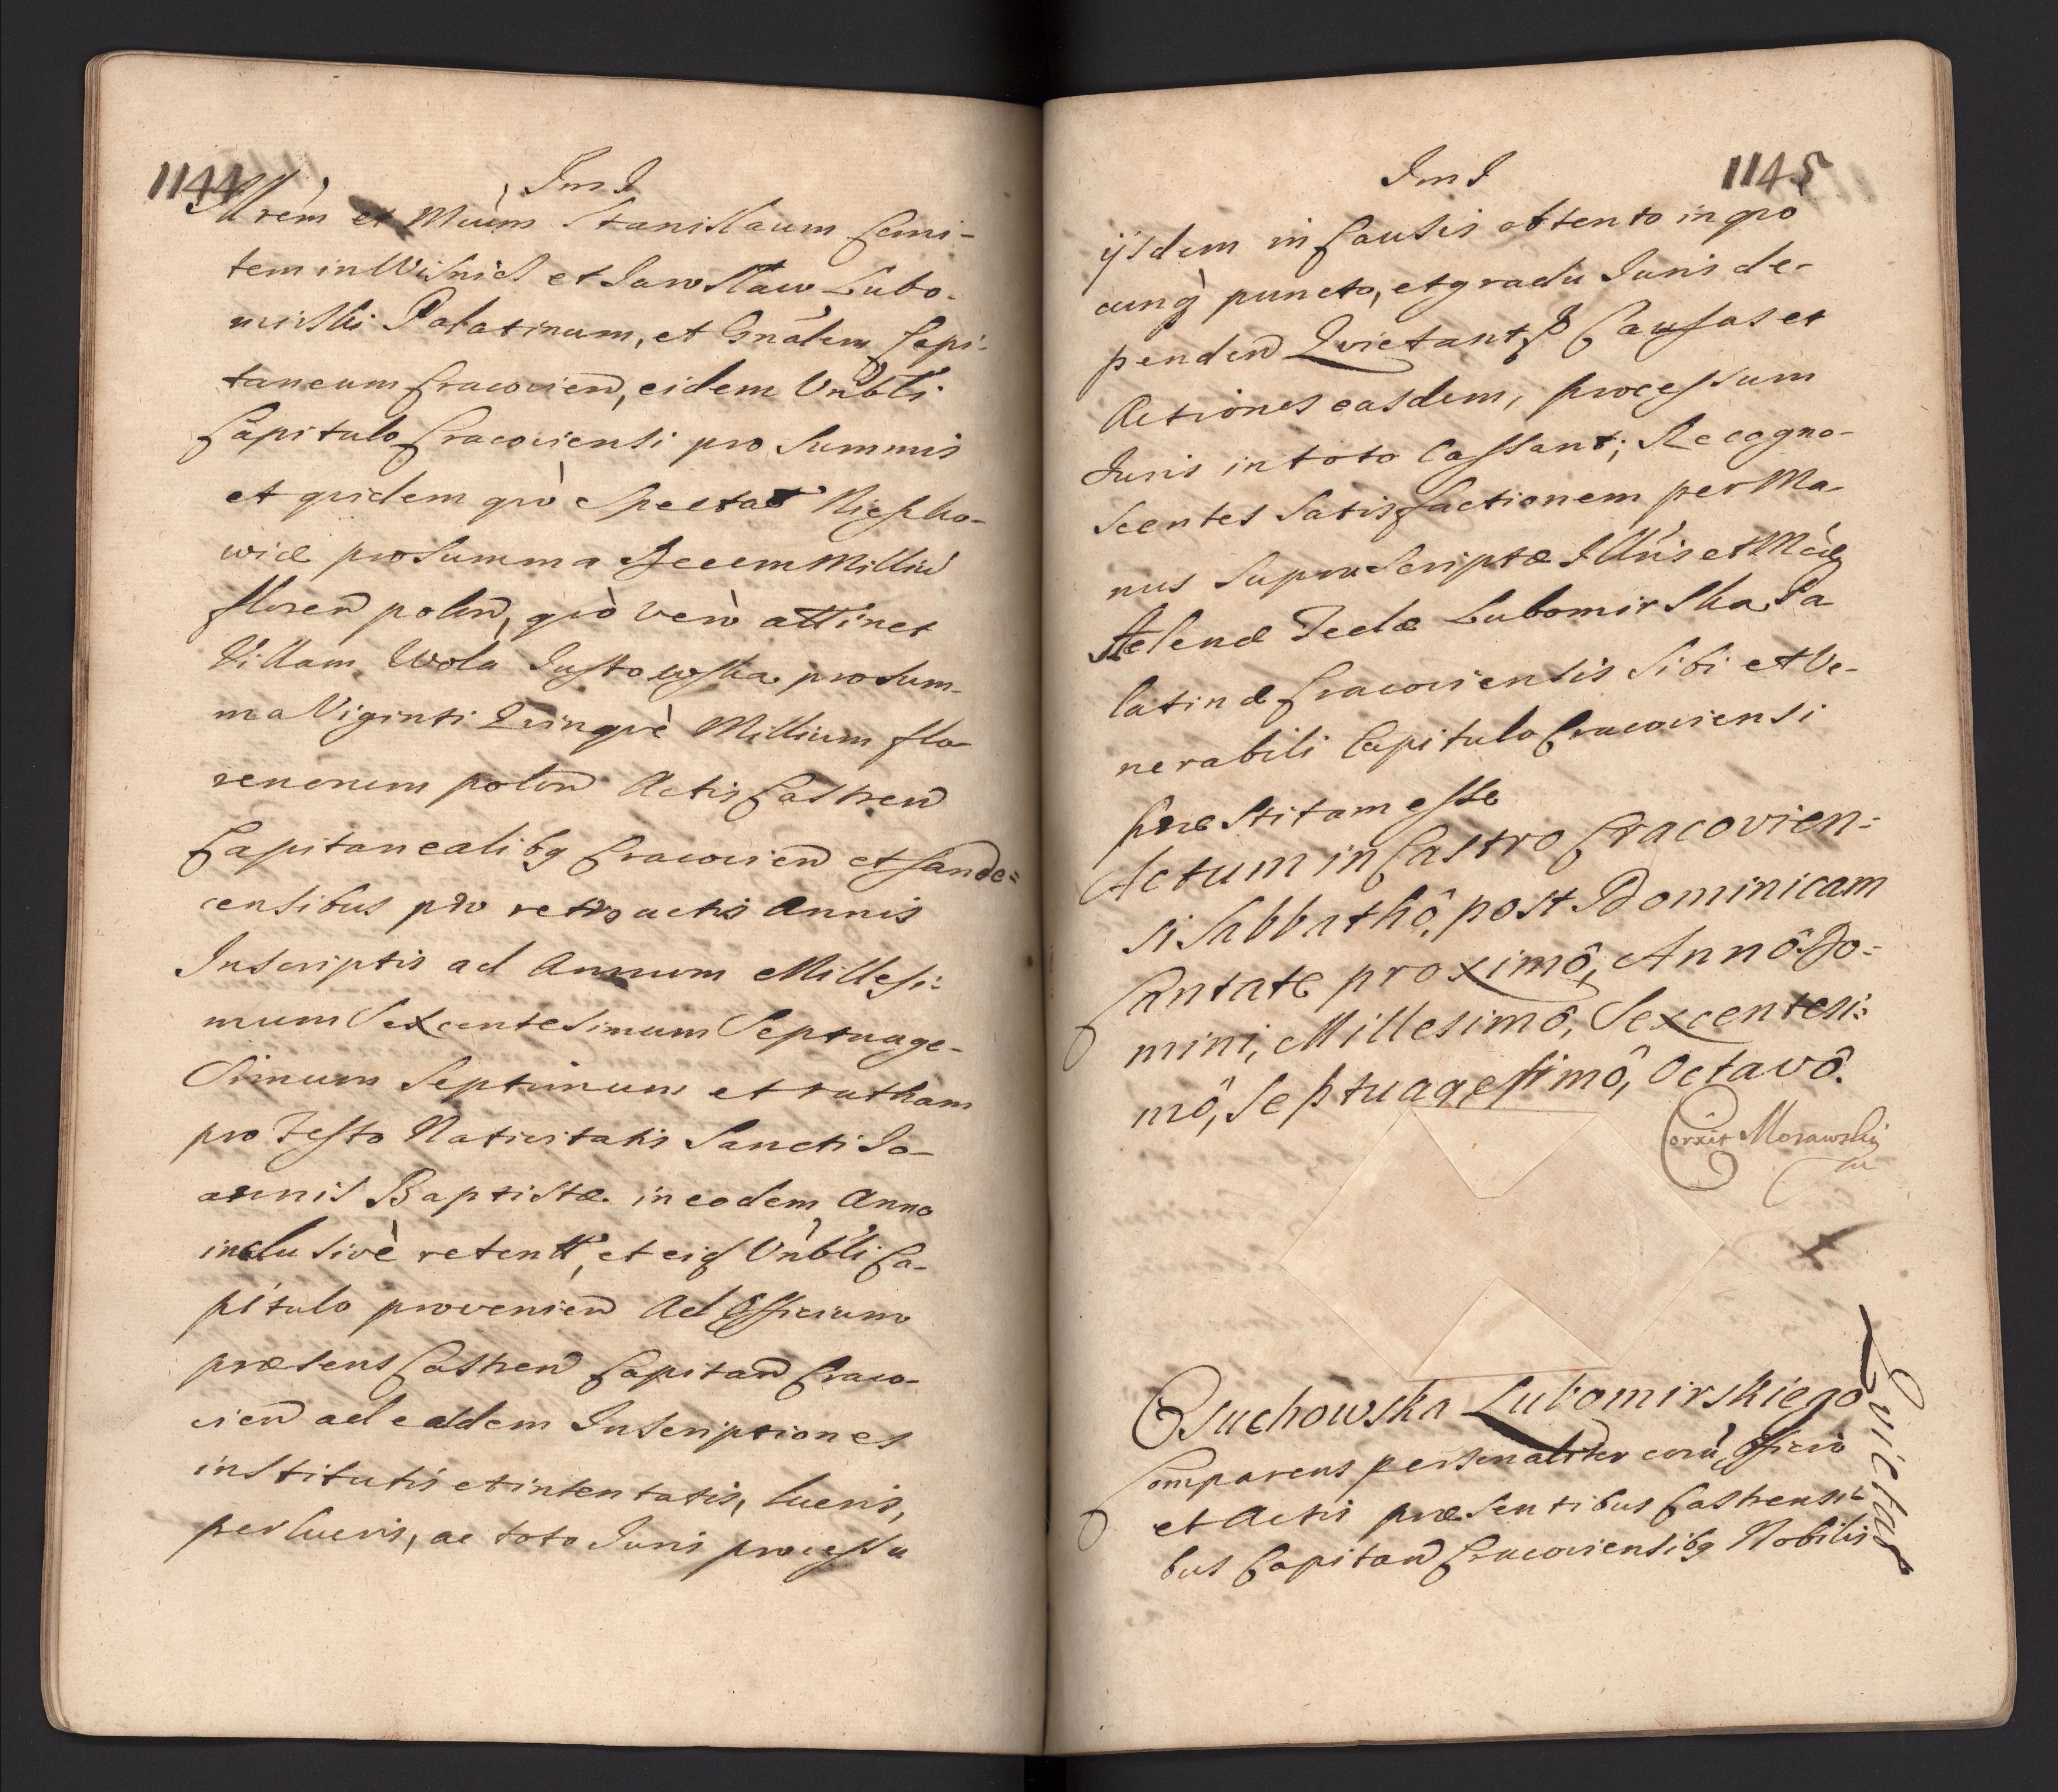 1144
Im I
Illrem et Mcum Stanislaum Comi-
tem in Wisnicz et Jaroslaw Lubo-
mirski Palatinum, et Gnalem Capi-
taneum Cracovien, eidem Vnbli
Capitulo Cracoviensi pro Summis
et quidem quo spectat
wice pro summa Decem Milliu
floren polon, quo vero attinet
Villam Wola Justowska pro sum-
ma Viginti Quinque Millium flo-
renorum polon Actis Castren
Capitanealibq Cracovien et Sande=
censibus pro retroactis Annis
Inscriptis ad Annum Millesi-
mum Sexcentesimum Septuage-
simum Septimum et ratham
pro Festo Nativitatis Sancti Jo-
annis Baptistæ in eodem Anno
inclusivè retent, et eid Vnbli Ca-
pitulo provenien Ad Officium
præsens Castren Capitan Craco-
vien ad easdem Inscriptiones
institutis et intentatis, lucris,
perlucris, ac toto Juris processu
Im I
1145
ijsdem in Causis obtento in quo
cunq puncto, et gradu Juris de-
penden Quietant Causas et
Actiones easdem, processum
Juris in toto Cassant; Recogno-
scentes Satisfactionem per Ma-
nus supra scriptæ Illris et Mcæ
Helenæ Teclæ Lubomirska Pa
latinæ Cracoviensis Sibi et Ve-
nerabili Capitulo Cracoviensi
præstitam esse
Actum in Castro Cracovien=
si Sabbathô, post Dominicam
Cantate proximô, Annô Do=
mini, Millesimô, Sexcentesi=
mô, Septuagesimô, Octavô.
Corxit Morawski
Quietat
Osuchowska Lubomirskiego
Comparens personaliter corà, Officio
et Actis præsentibus Castrensi-
bus Capitan Cracoviensibq Nobilis